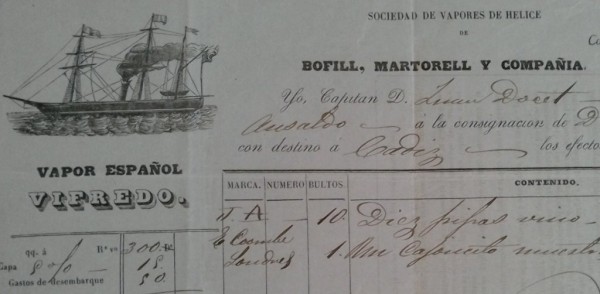 SOCIEDAD DE VAPORES DE HELICE
DE
Co
BOFILL, MARTORELL Y COMPAÑIA.
Yo, Capitan D. Juan Doret
Ansaldo á la consignacion de D
con destino á Cadiz los efecto
VAPOR ESPAÑOL
VIFREDO.
MARCA. NUMERO BULTOS. CONTENIDO.
A 10 Diez pipas vino
E Coombe
Londres 1. Un Cajoncito muestr
qq. á R.s vn 300
Capa 5 % 15
Gastos de desembarque 50